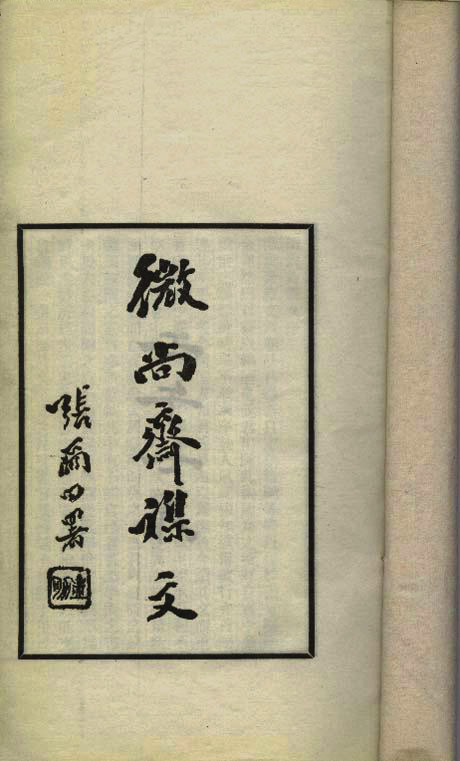 微尚齋襍文
張爾田署